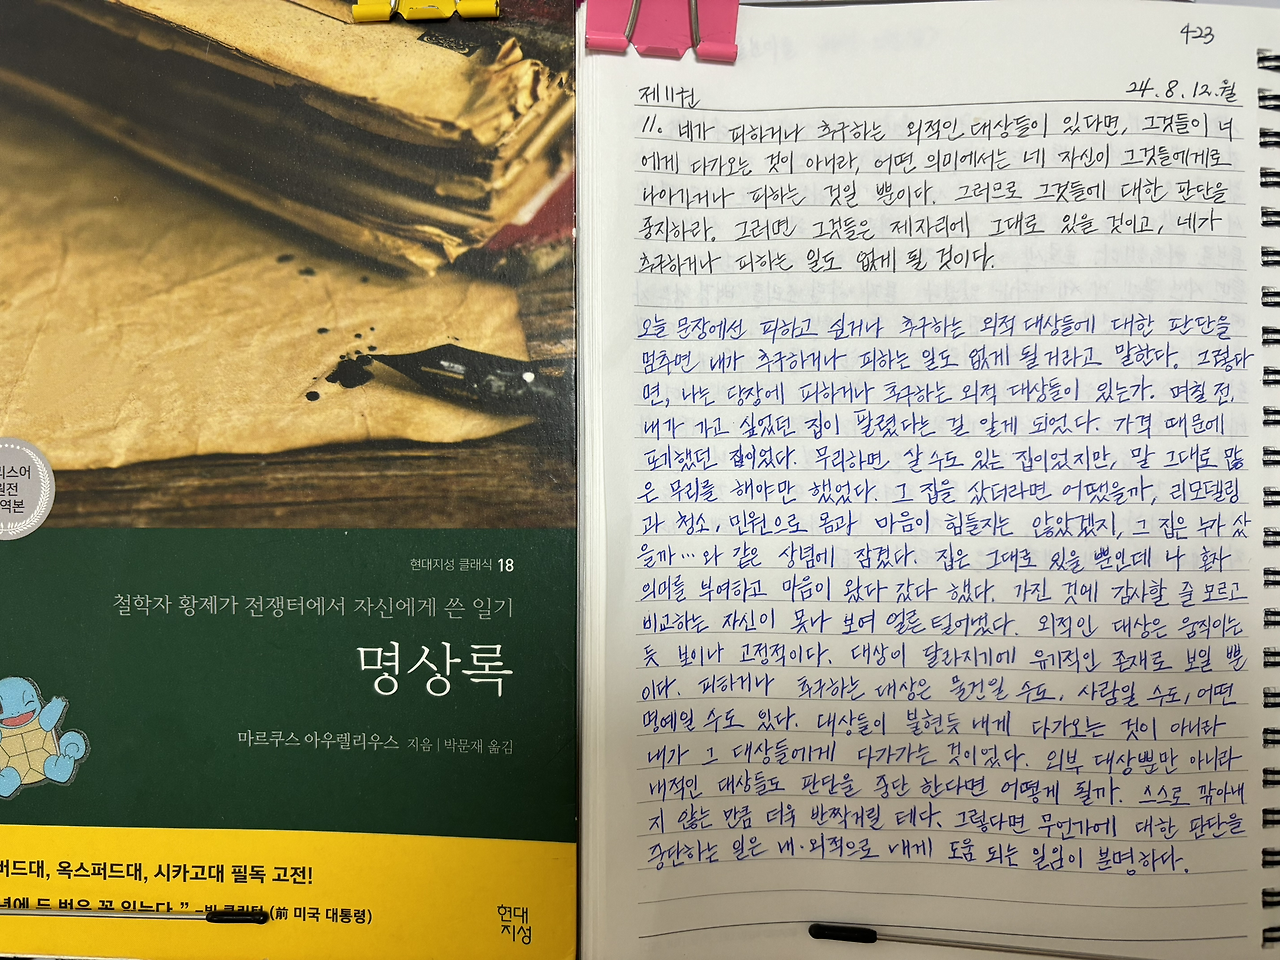 리스어
원전
역본
현대지성 클래식 18
철학자 황제가 전쟁터에서 자신에게 쓴 일기
명상록
마르쿠스 아우렐리우스 지음 | 박문재 옮김
버드대, 옥스퍼드대, 시카고대 필독 고전!
년에 두 번은 꼭 읽는다." –빌 클린턴 (前 미국 대통령)
현대
지성
4-23
제11권 24.8.12.월
11. 네가 피하거나 추구하는 외적인 대상들이 있다면, 그것들이 너
에게 다가오는 것이 아니라, 어떤 의미에서는 네 자신이 그것들에게로
나아가거나 피하는 것일 뿐이다. 그러므로 그것들에 대한 판단을
중지하라. 그러면 그것들은 제자리에 그대로 있을 것이고, 네가
추구하거나 피하는 일도 없게 될 것이다.
오늘 문장에선 피하고 싶거나 추구하는 외적 대상들에 대한 판단을
멈추면 내가 추구하거나 피하는 일도 없게 될거라고 말한다. 그렇다
면, 나는 당장에 피하거나 추구하는 외적 대상들이 있는가. 며칠 전,
내가 가고 싶었던 집이 팔렸다는 걸 알게 되었다. 가격 때문에
포기했던 집이었다. 무리하면 살 수도 있는 집이었지만, 말 그대로 많
은 무리를 해야만 했었다. 그 집을 샀더라면 어땠을까, 리모델링
과 청소, 민원으로 몸과 마음이 힘들지는 않았겠지, 그 집은 누가 샀
을까… 와 같은 상념에 잠겼다. 집은 그대로 있을 뿐인데 나 혼자
의미를 부여하고 마음이 왔다 갔다 했다. 가진 것에 감사할 줄 모르고
비교하는 자신이 못나 보여 얼른 털어냈다. 외적인 대상은 움직이는
듯 보이나 고정적이다. 대상이 달라지기에 유기적인 존재로 보일 뿐
이다. 피하거나 추구하는 대상은 물건일 수도, 사람일 수도, 어떤
명예일 수도 있다. 대상들이 불현듯 내게 다가오는 것이 아니라
내가 그 대상들에게 다가가는 것이었다. 외부 대상뿐만 아니라
내적인 대상들도 판단을 중단 한다면 어떻게 될까. 스스로 깎아내
지 않는 만큼 더욱 반짝거릴 테다. 그렇다면 무언가에 대한 판단을
중단하는 일은 내·외적으로 내게 도움 되는 일임이 분명하다.